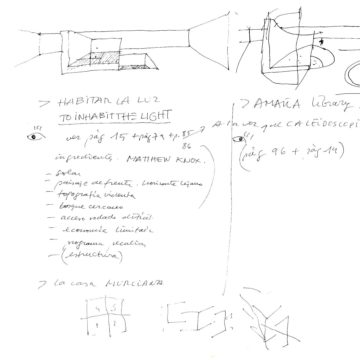 > HABITAR LA LUZ
TO INHABIT THE LIGHT
ver pág 15 + pág 79 + p. 85
86
ingredientes. MATTHEW KNOX.
- solar
- paisaje de frente. horizonte lejano
- topografía violenta
- bosque cercano
- acceso rodado difícil
- economía limitada
- programa
- (estructura)
> la casa MURCIANA
> AMAÑA library.
a la vez que CALEIDOSCOPI
(pág 96 + pág 19)